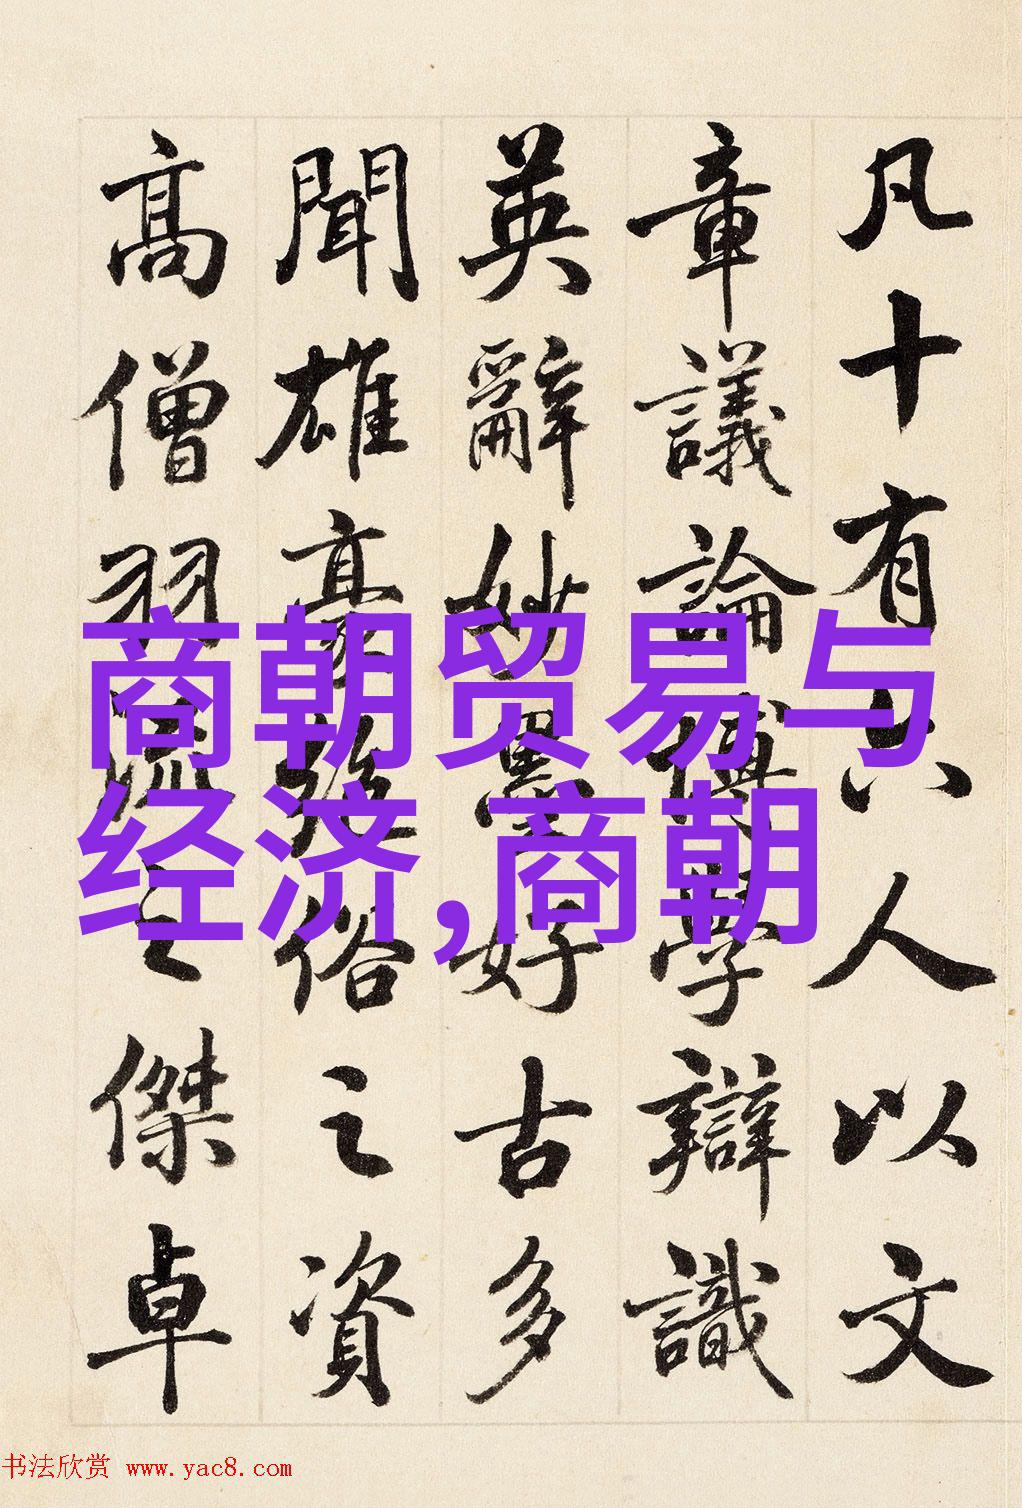 凡十有六人以文
章議論博學辯識
英辭妙墨好古多
聞雄豪絶俗之資
高僧羽流之傑卓
商朝贸易与
经济,商朝
书法欣赏 www.yac8.com